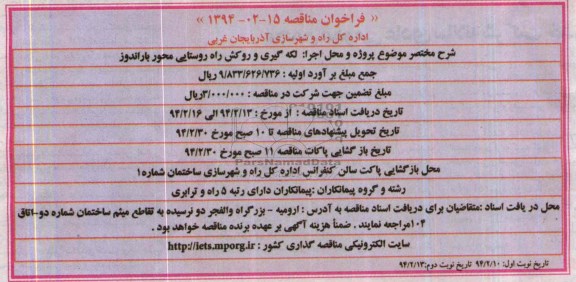 « فراخوان مناقصه ۱۵-۰۲- ۱۳۹۴ »
اداره کل راه و شهرسازی آذربایجان غربی
شرح مختصر موضوع پروژه و محل اجرا: لکه گیری و روکش راه روستایی محور باراندوز
جمع مبلغ بر آورد اولیه : ۹/۸۳۳/۶۲۶/۷۳۶ ریال
مبلغ تضمین جهت شرکت در مناقصه : ۳/۰۰۰/۰۰۰ریال
تاریخ دریافت اسناد مناقصه : از مورخ : ۹۴/۲/۱۳ الی ۹۴/۲/۱۶
تاریخ تحویل پیشنهادهای مناقصه تا ۱۰ صبح مورخ ۹۴/۲/۳۰
تاریخ باز گشایی پاکات مناقصه ۱۱ صبح مورخ ۹۴/۲/۳۰
ParsNamadData
محل بازگشایی پاکت سالن کنفرانس اداره کل راه و شهرسازی ساختمان شماره۱
رشته و گروه پیمانکاران :پیمانکاران دارای رتبه ۵ راه و ترابری
محل در یافت اسناد :متقاضیان برای دریافت اسناد مناقصه به آدرس : ارومیه - بزرگراه والفجر دو نرسیده به تقاطع میثم ساختمان شماره دو-اتاق
۱۰۴مراجعه نمایند . ضمناً هزینه آگهی بر عهده برنده مناقصه خواهد بود .
سایت الکترونیکی مناقصه گذاری کشور : http://iets.mporg.ir
تاریخ نوبت اول: ۹۴/۲/۱۰ تاریخ نوبت دوم:۹۴/۲/۱۳